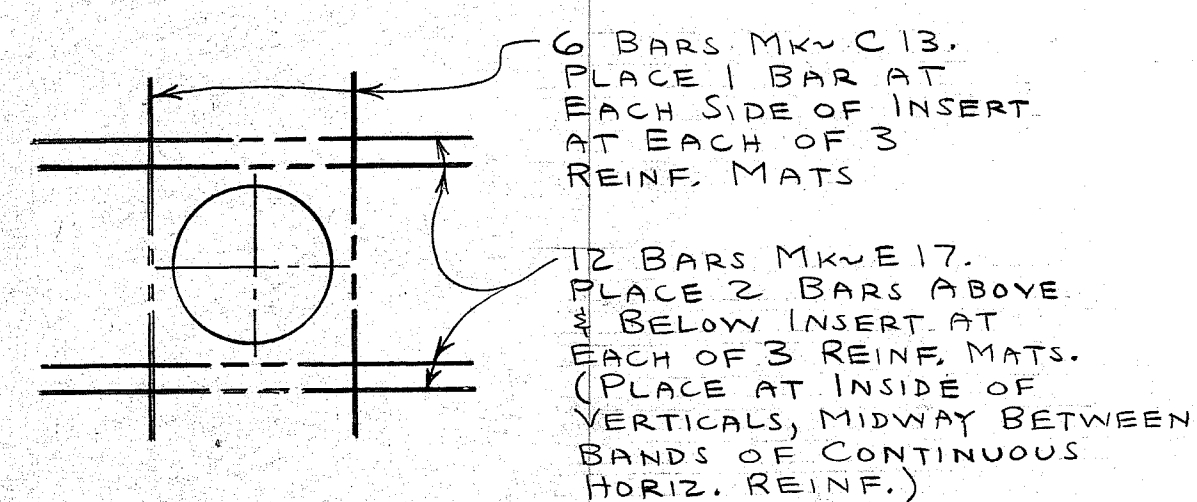 6 BARS MK~ C 13.
PLACE 1 BAR AT
EACH SIDE OF INSERT
AT EACH OF 3
REINF. MATS
12 BARS MK~ E 17.
PLACE 2 BARS ABOVE
& BELOW INSERT AT
EACH OF 3 REINF. MATS.
(PLACE AT INSIDE OF
VERTICALS, MIDWAY BETWEEN
BANDS OF CONTINUOUS
HORIZ. REINF.)